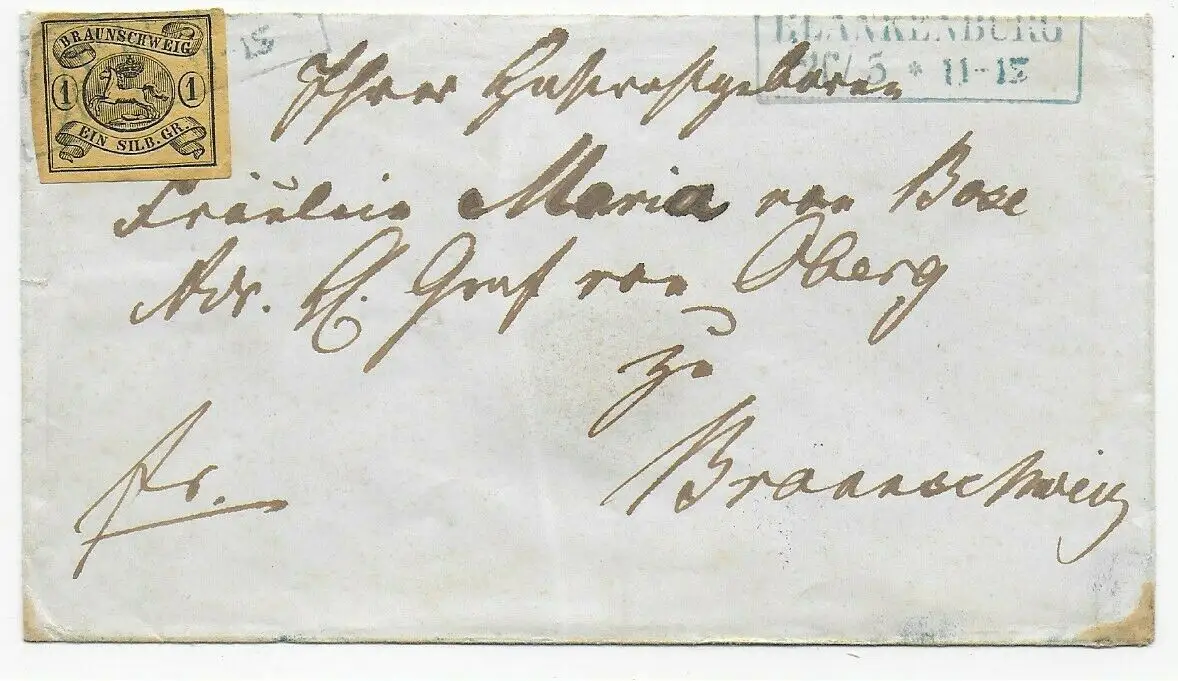 BRAUNSCHWEIG
1 1
EIN SILB. GR.
BLANKENBURG
26/5 * 11-12
Ihrer
Fräulein Maria von Bose
Adr. H. Graf von Oberg
zu
Braunschweig
fr.